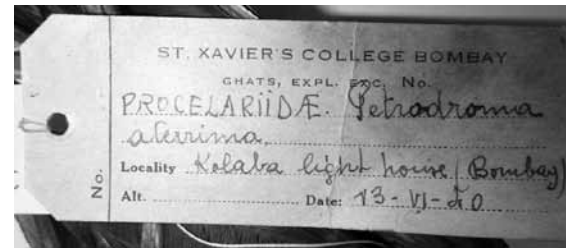 ST. XAVIER'S COLLEGE BOMBAY
GHATS, EXPL. EXC. No.
PROCELARIIDÆ. Petrodroma
aterrima.
Locality Kolaba light house (Bombay)
Alt. Date: 13-VI-40
No.